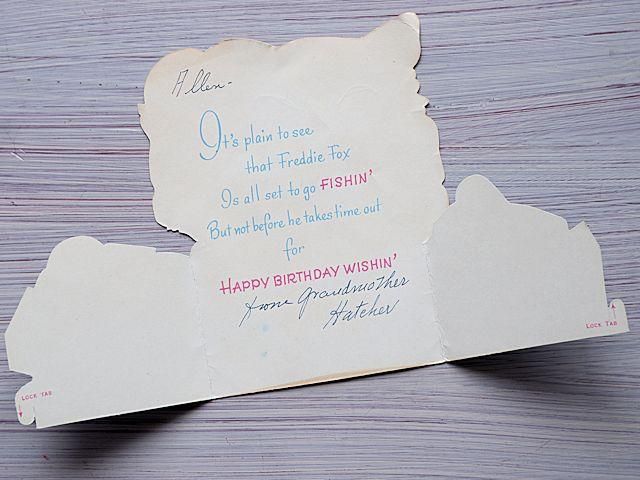 Allen-
It's plain to see
that Freddie Fox
Is all set to go FISHIN'
But not before he takes time out
for
HAPPY BIRTHDAY WISHIN'
from Grandmother
Hatcher
LOCK TAB
LOCK TAB